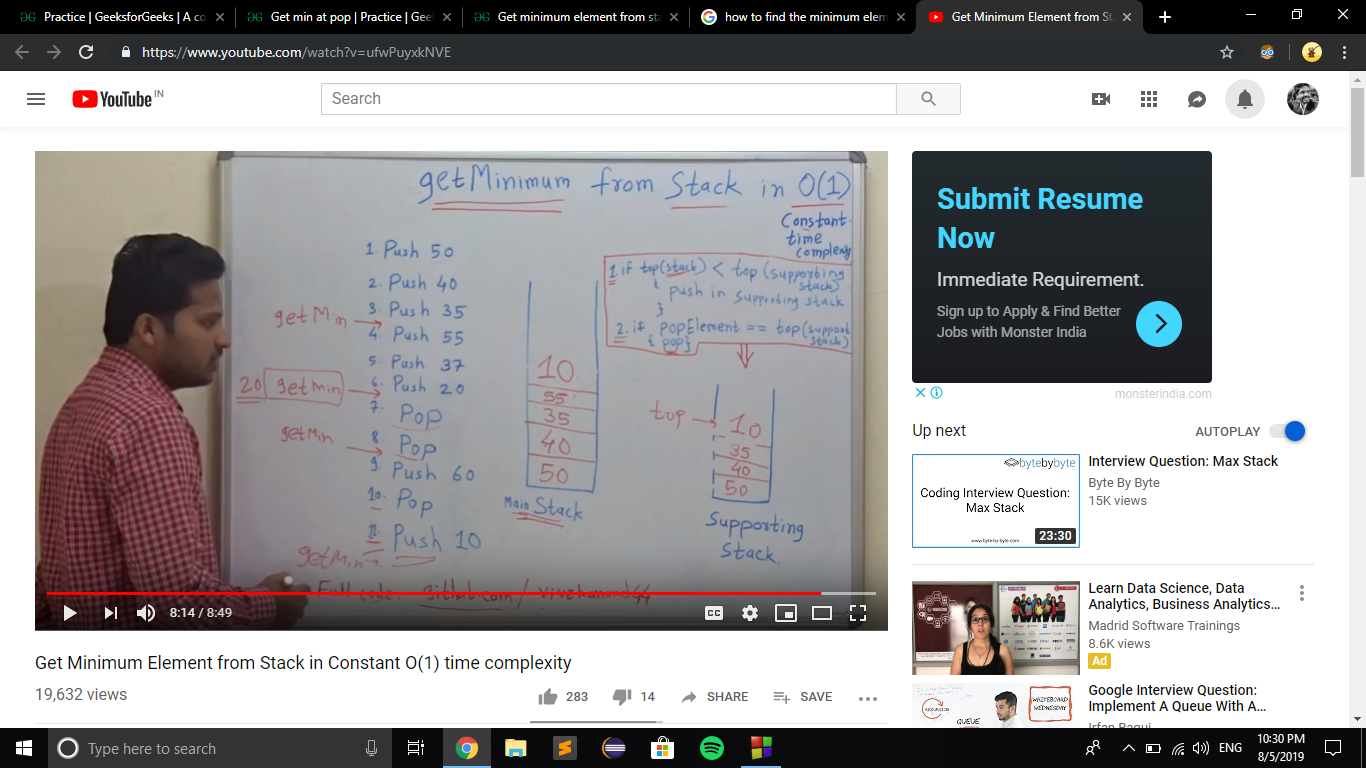 Practice | GeeksforGeeks | A co
Get min at pop | Practice | Gee
Get minimum element from sta
how to find the minimum elem
Get Minimum Element from St
https://www.youtube.com/watch?v=ufwPuyxkNVE
YouTube IN
Search
getMinimum from Stack in O(1)
Constant
time
complexity
1. Push 50
2. Push 40
3. Push 35
getMin
4. Push 55
5. Push 37
6. Push 20
20 getMin
7. Pop
getMin
8. Pop
9. Push 60
10. Pop
11. Push 10
getMin
Full code: github.com/
10
55
35
40
50
Main Stack
1. if top(stack) < top (supporting
stack)
{ push in supporting stack
}
2. if popElement == top(support
stack)
{ pop}
top
10
35
40
50
Supporting
Stack
8:14 / 8:49
CC
Get Minimum Element from Stack in Constant O(1) time complexity
19,632 views
283
14
SHARE
SAVE
Submit Resume
Now
Immediate Requirement.
Sign up to Apply & Find Better
Jobs with Monster India
monsterindia.com
Up next
AUTOPLAY
bytebybyte
Coding Interview Question:
Max Stack
www.byte-by-byte.com
23:30
Interview Question: Max Stack
Byte By Byte
15K views
Learn Data Science, Data
Analytics, Business Analytics...
Madrid Software Trainings
8.6K views
Ad
WHITEBOARD
WEDNESDAY
QUEUE
Google Interview Question:
Implement A Queue With A...
Irfan Baqui
Type here to search
ENG
10:30 PM
8/5/2019